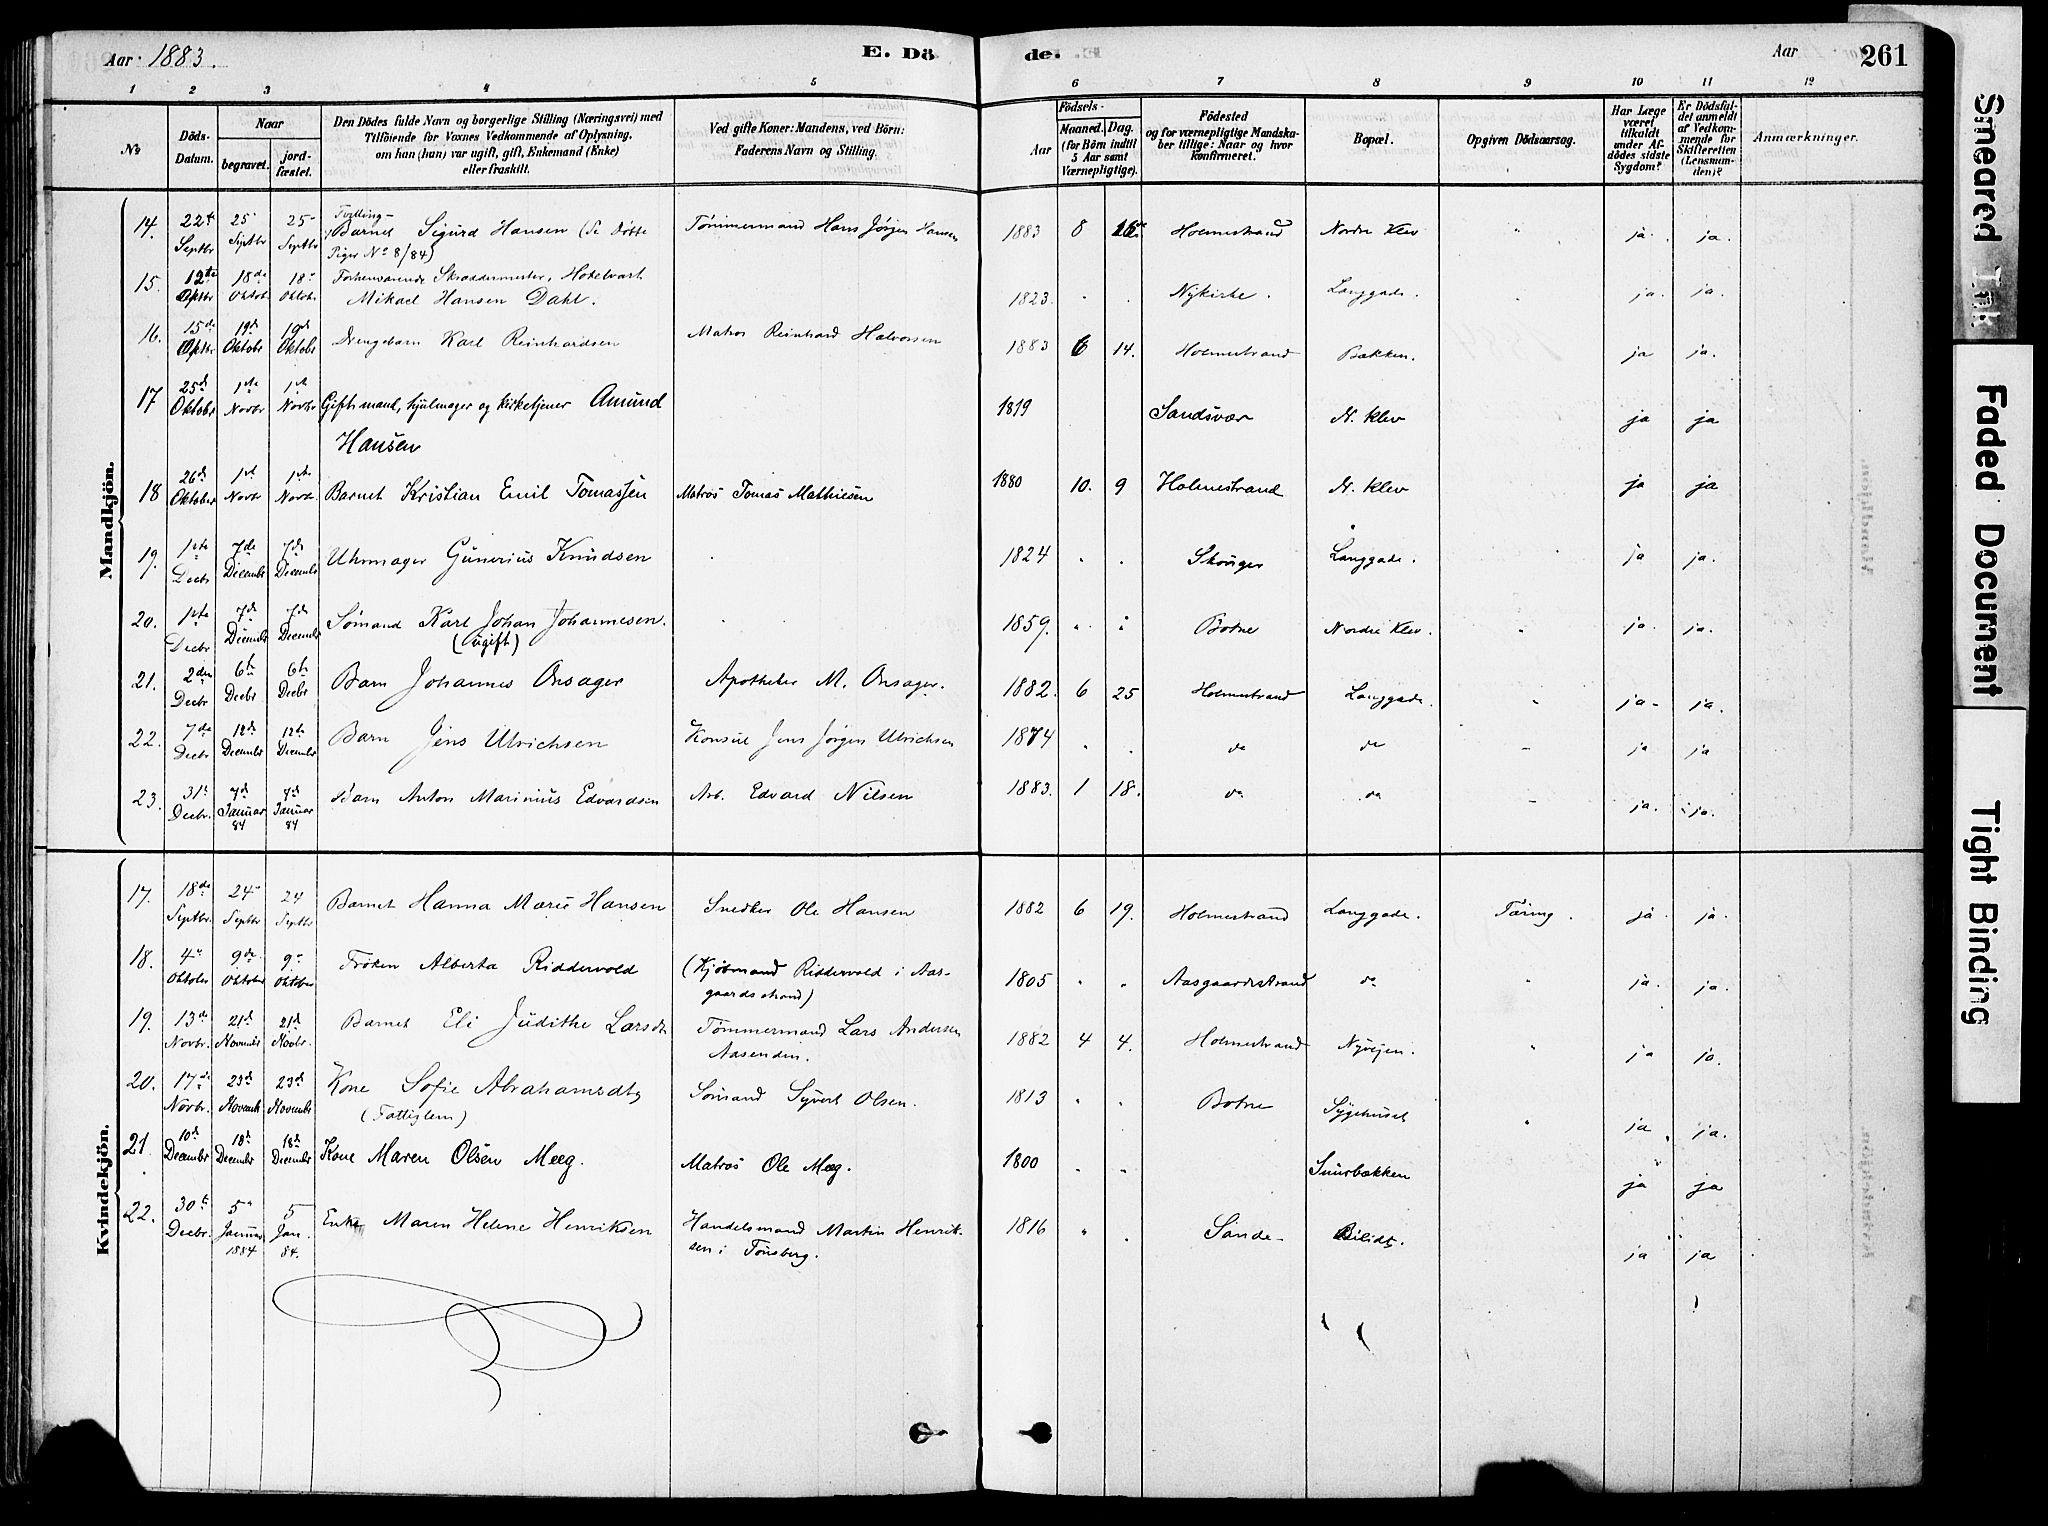 Aar 1883. E. Dö de. Aar 261
1 2 3 4 5 6 7 8 9 10 11 12
№ Döds-Datum. Naar begravet. jord-fæstet. Den Dödes fulde Navn og borgerlige Stilling (Næringsvei) med Tilföiende for Voxnes Vedkommende af Oplysning, om han (hun) var ugift, gift, Enkemand (Enke) eller fraskilt. Ved gifte Koner: Mandens, ved Börn: Faderens Navn og Stilling. Födsels- Aar Maaned. Dag. (for Börn indtil 5 Aar samt Værnepligtige). Födested og for værnepligtige Mandskaber tillige: Naar og hvor konfirmeret. Bopæl. Opgiven Dödsaarsag. Har Læge været tilkaldt under Afdödes sidste Sygdom? Er Dödsfaldet anmeldt af Vedkommende for Skifteretten (Lensmanden)? Anmærkninger.
Mandkjön.
14. 22de Septbr 25 Septbr 25 Septbr Tvilling-Barnet Sigurd Hansen (Se Døbte Piger No 8/84) Tømmermand Hans Jørgen Hansen 1883 8 Holmestrand Nordre Klev " ja. ja.
15. 12te Optbr 18de Oktobr 18 Oktobr Forhenværende Skræddermester, Hotelvært Mikael Hansen Dahl. 1823 " " Nykirke. Langgade. " ja. ja.
16. 15de Optbr 19d Oktobr 19d Oktobr Drengebarn Karl Reinhardsen Matros Reinhard Halvorsen 1883 6 14. Holmestrand Bakken. ja ja.
17 25d Oktobr 1ste Novbr 1ste Novbr Gift mand, hjulmager og kirketjener Amund Hansen 1819 Sandsvær N. Klev ja ja
18 26d Oktober 1st Novbr 1ste Novbr Barnet Kristian Emil Tomassen Matros Tomas Mathiesen 1880 10. 9 Holmestrand N. Klev ja ja
19. 1ste Decbr 7de Decembr 7de Decembr Uhrmager Gunerius Knudsen 1824 " " Skouger Langgade. ja ja.
20. 1ste Decbr 7de Decembr 7de Decembr Sømand Karl Johan Johannesen. (ugift) 1859. " " Botne Nordre Klev. " ja. ja.
21. 2den Decbr 6te Decbr 6te Decbr Barn Johannes Onsager Apotheker M. Onsager. 1882. 6 25 Holmestrand Langgade. " ja - ja.
22. 7de Decbr 12de Decembr 12de Decembr Barn Jens Ulrichsen Konsul Jens Jørgen Ulrichsen 1874 " " do do - ja ja
23. 31te Decbr. 7d Januar 84 7d Januar 84 Barn Anton Marinius Edvardsen Arb. Edvard Nilsen 1883. 1 18. do do - ja. ja.
Kvindekjön.
17. 18de Septbr. 24 Septbr 24 Septbr Barnet Hanna Marie Hansen Snedker Ole Hansen 1882 6 19. Holmestrand Langgade. Tæring. ja ja.
18. 4de Oktober 9de Oktober 9de Oktober Frøken Alberta Riddervold (Kjøbmand Riddervold i Aasgaardsstrand) 1805 " " Aasgaardsstrand do " ja. ja.
19. 13de Novbr. 21d Novembr 21d Novbr. Barnet Eli Judithe Larsdt Tømmermand Lars Andersen Aasenden. 1882 4 4. Holmestrand Nyvejen. " ja ja.
20. 17de Novbr. 23d Novemb 23d Novembr Kone Sofie Abrahamsdtr (Fattiglem) Sømand Syvert Olsen. 1813 " " Botne Sygehuset " ja ja.
21. 10d Decembr 18d Decembr 18d Decembr Kone Maren Olsen Meeg. Matros Ole Meg. 1800 " " Snurbækken ja ja
22. 30te Decbr. 5 Januar 1884 5 Jan. 84. Enke Maren Helene Henriksen Handelsmand Martin Henriksen i Tønsberg. 1816 " " Sande - ja ja
Smeared Ink
Faded Document
Tight Binding